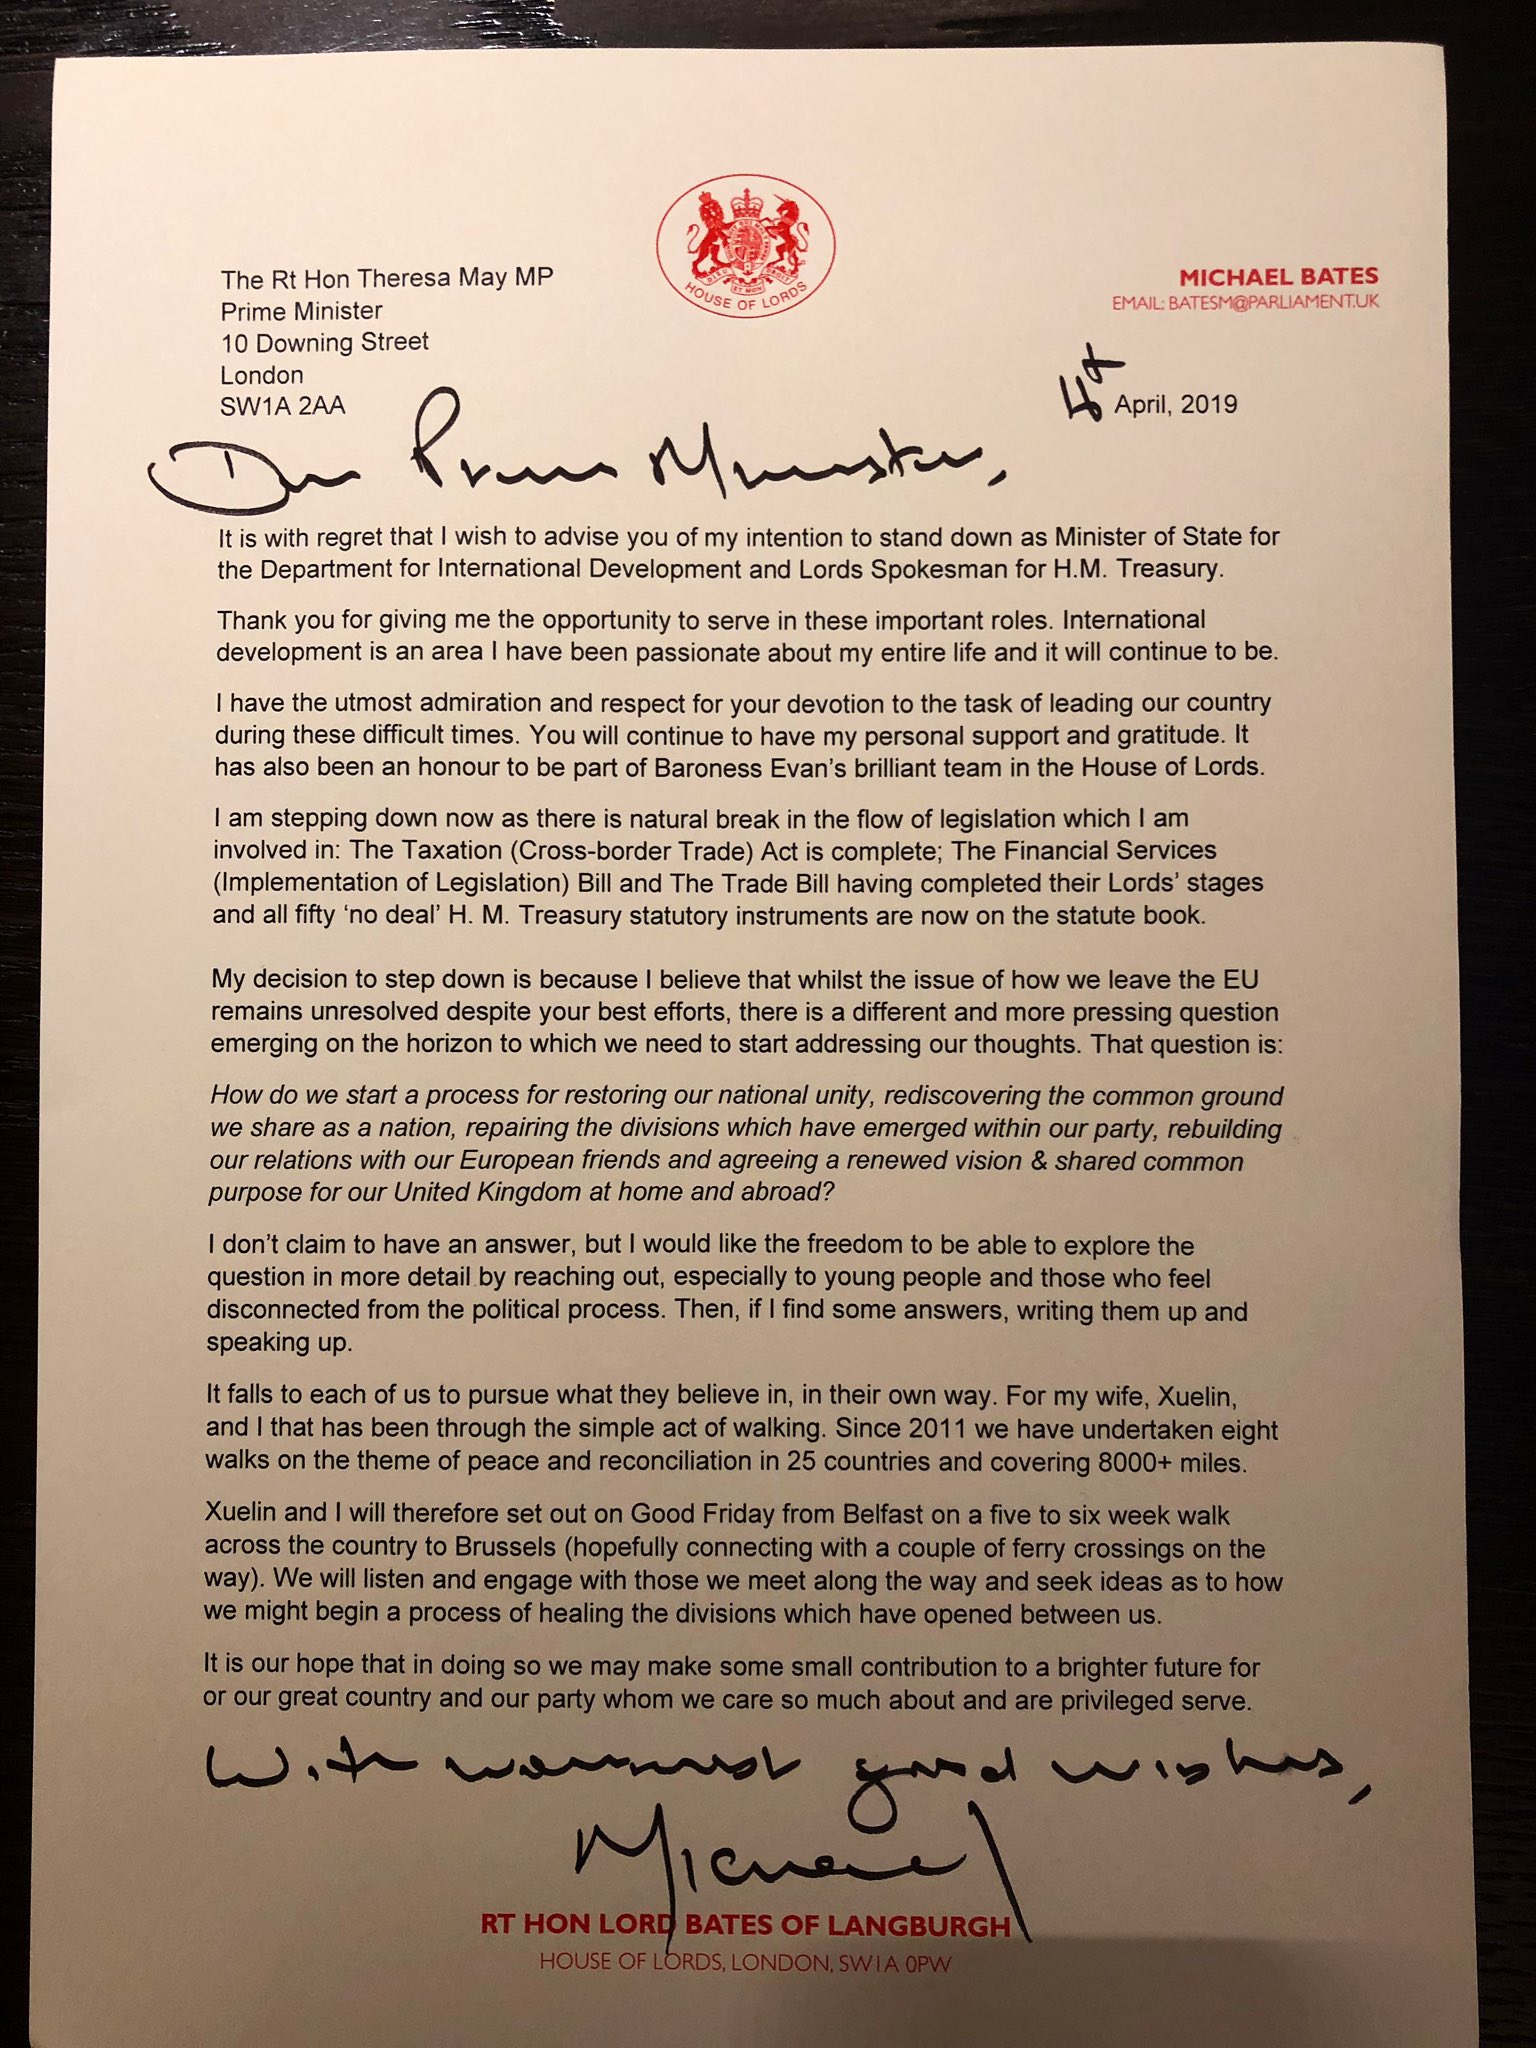 HOUSE OF LORDS
The Rt Hon Theresa May MP
Prime Minister
10 Downing Street
London
SW1A 2AA
MICHAEL BATES
EMAIL: BATESM@PARLIAMENT.UK
4th April, 2019
Dear Prime Minister,
It is with regret that I wish to advise you of my intention to stand down as Minister of State for
the Department for International Development and Lords Spokesman for H.M. Treasury.
Thank you for giving me the opportunity to serve in these important roles. International
development is an area I have been passionate about my entire life and it will continue to be.
I have the utmost admiration and respect for your devotion to the task of leading our country
during these difficult times. You will continue to have my personal support and gratitude. It
has also been an honour to be part of Baroness Evan’s brilliant team in the House of Lords.
I am stepping down now as there is natural break in the flow of legislation which I am
involved in: The Taxation (Cross-border Trade) Act is complete; The Financial Services
(Implementation of Legislation) Bill and The Trade Bill having completed their Lords’ stages
and all fifty ‘no deal’ H. M. Treasury statutory instruments are now on the statute book.
My decision to step down is because I believe that whilst the issue of how we leave the EU
remains unresolved despite your best efforts, there is a different and more pressing question
emerging on the horizon to which we need to start addressing our thoughts. That question is:
How do we start a process for restoring our national unity, rediscovering the common ground
we share as a nation, repairing the divisions which have emerged within our party, rebuilding
our relations with our European friends and agreeing a renewed vision & shared common
purpose for our United Kingdom at home and abroad?
I don’t claim to have an answer, but I would like the freedom to be able to explore the
question in more detail by reaching out, especially to young people and those who feel
disconnected from the political process. Then, if I find some answers, writing them up and
speaking up.
It falls to each of us to pursue what they believe in, in their own way. For my wife, Xuelin,
and I that has been through the simple act of walking. Since 2011 we have undertaken eight
walks on the theme of peace and reconciliation in 25 countries and covering 8000+ miles.
Xuelin and I will therefore set out on Good Friday from Belfast on a five to six week walk
across the country to Brussels (hopefully connecting with a couple of ferry crossings on the
way). We will listen and engage with those we meet along the way and seek ideas as to how
we might begin a process of healing the divisions which have opened between us.
It is our hope that in doing so we may make some small contribution to a brighter future for
or our great country and our party whom we care so much about and are privileged serve.
With warmest good wishes,
Michael
RT HON LORD BATES OF LANGBURGH
HOUSE OF LORDS, LONDON, SW1A 0PW